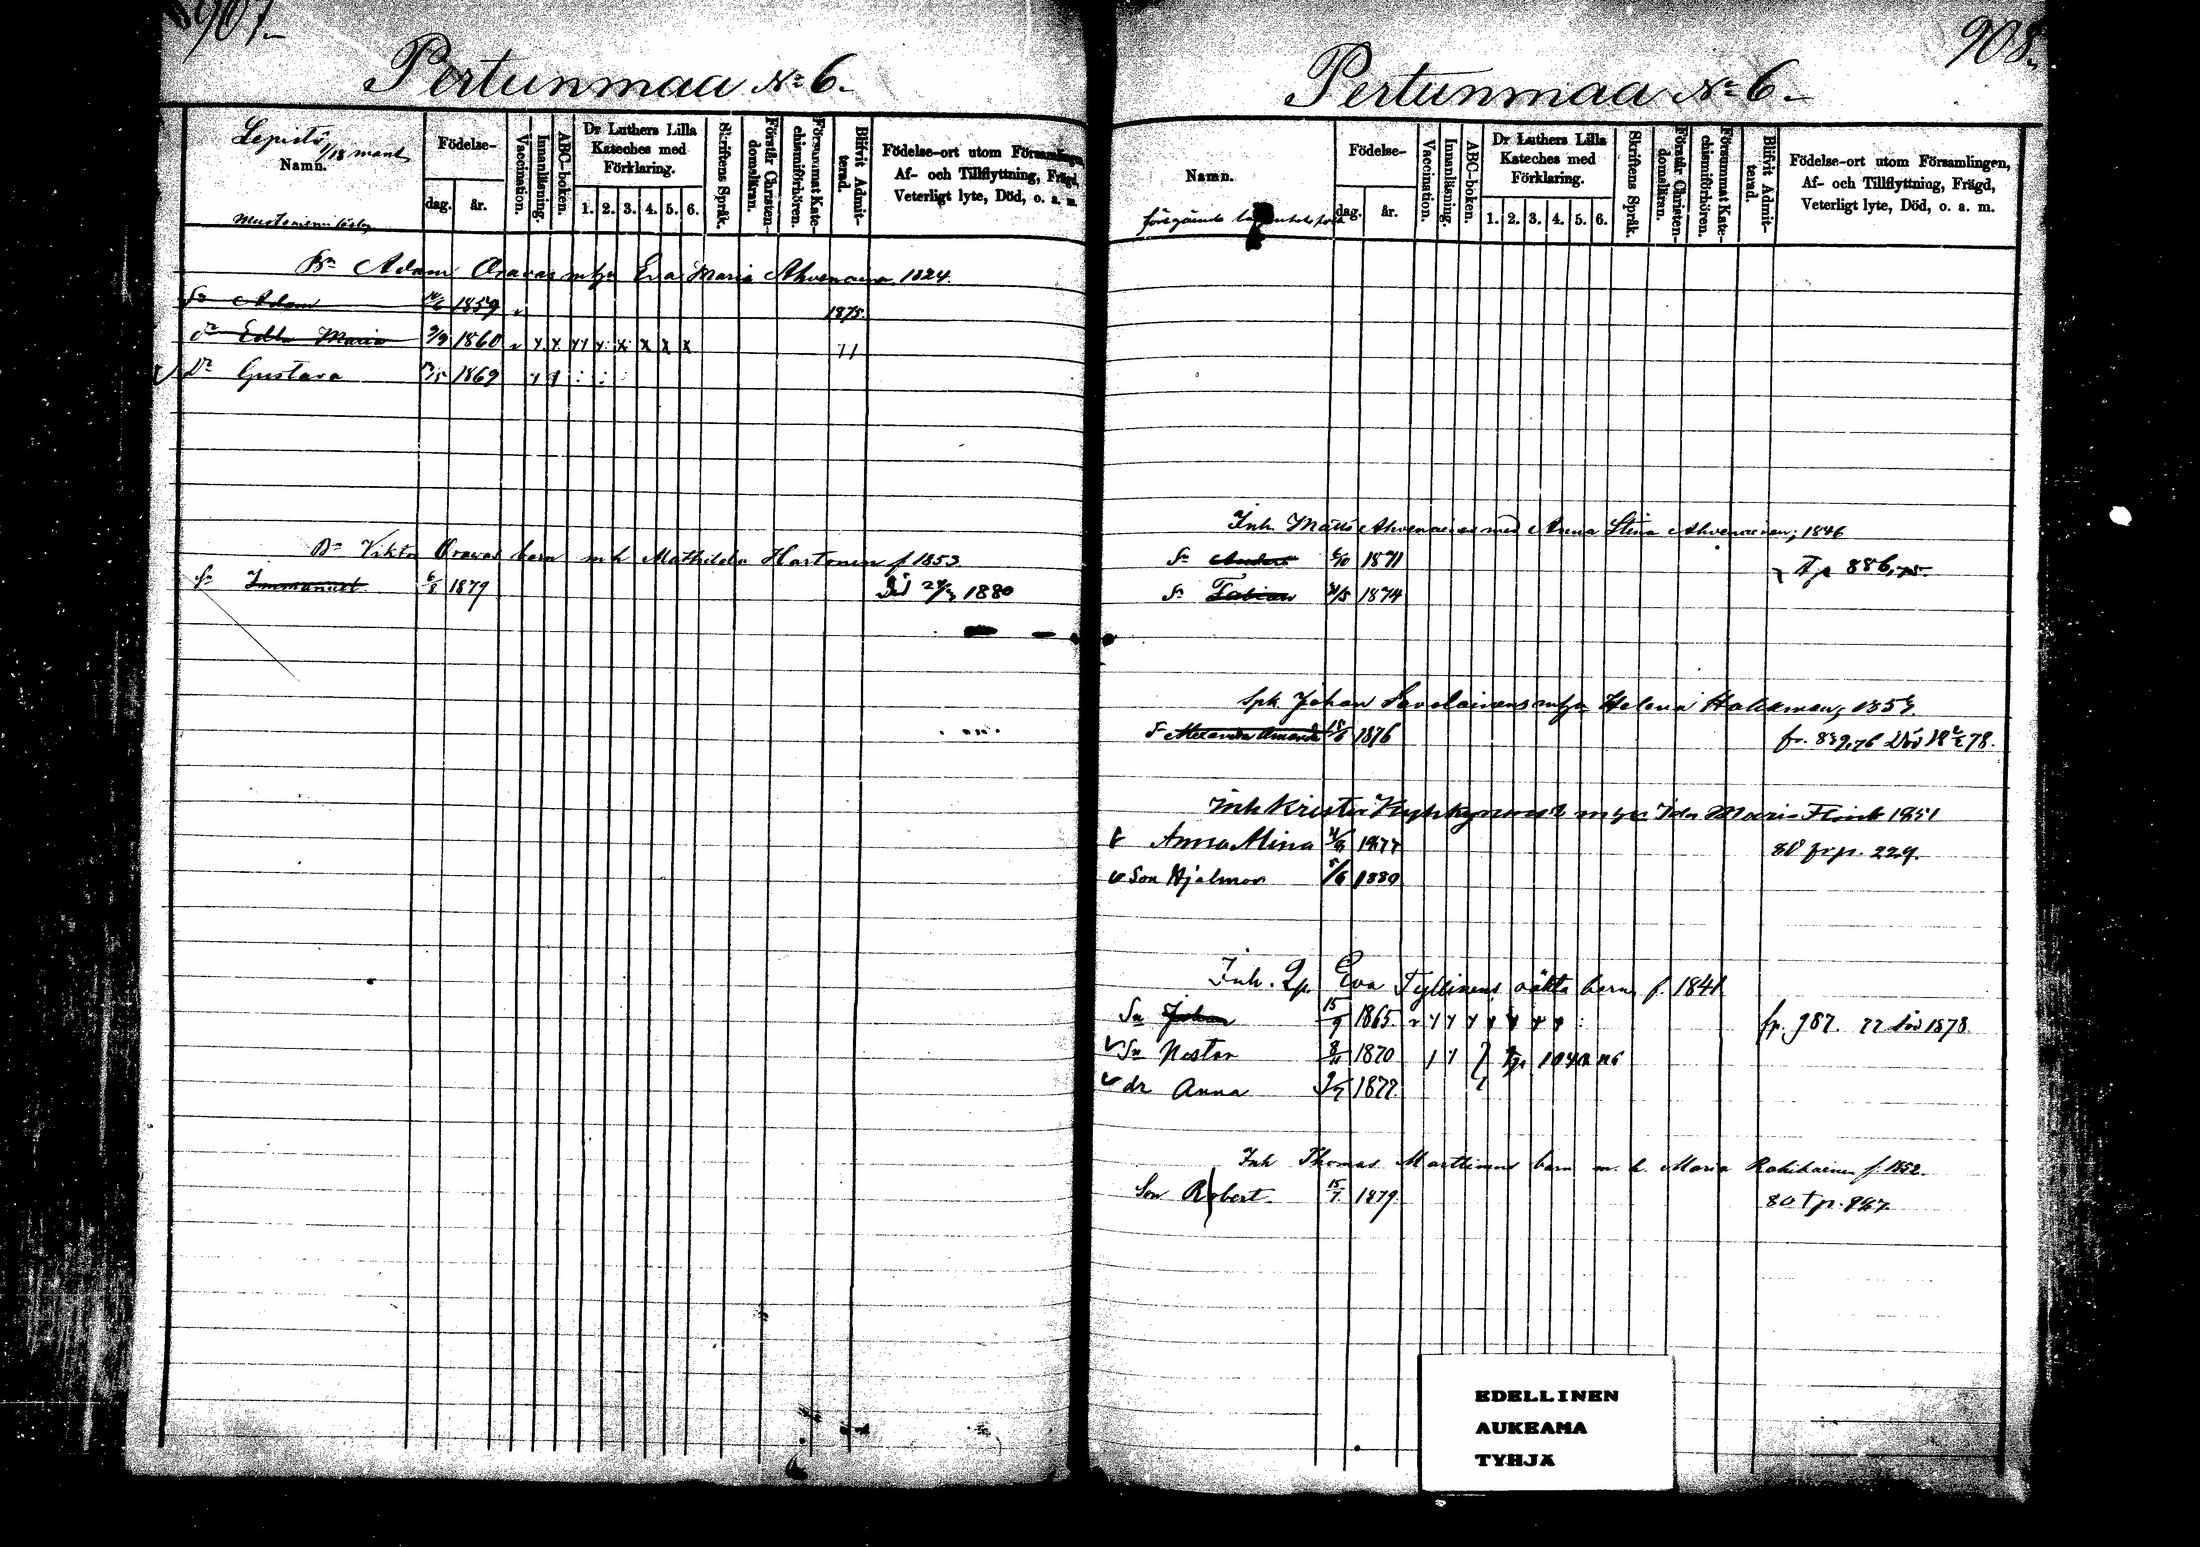 907.
Pertunmaa No 6.
Lepistö 1/18 mant
Namn.
Födelse-
dag.
år.
Vaccination.
Innanläsning.
ABC-boken.
Dr Luthers Lilla
Kateches med
Förklaring.
1. 2. 3. 4. 5. 6.
Skriftens Språk.
Förstår Christen-
domsläran.
Försummat Kate-
chismiförhören.
Blifvit Admit-
terad.
Födelse-ort utom Församlingen,
Af- och Tillflyttning, Frägd,
Veterligt lyte, Död, o. a. m.
Bn Adam Oravas m hu Eva Maria Ahvenainen 1824.
Sn Adam 1859 v 1875
Dr Edla Maria 9/9 1860 v y y y y x x x x 77
v Dr Gustava 1869 y y : :
Bn Viktor Oravas barn m h Mathilda Hartonen f 1853
Sn Immanuel 6/8 1879 Död 1880
908.
Pertunmaa No 6.
Namn.
föregående
Födelse-
dag.
år.
Vaccination.
Innanläsning.
ABC-boken.
Dr Luthers Lilla
Kateches med
Förklaring.
1. 2. 3. 4. 5. 6.
Skriftens Språk.
Förstår Christen-
domsläran.
Försummat Kate-
chismiförhören.
Blifvit Admit-
terad.
Födelse-ort utom Församlingen,
Af- och Tillflyttning, Frägd,
Veterligt lyte, Död, o. a. m.
Inh. Matts Ahvenainen med Anna Stina Ahvenainen, 1846
Sn Anders 6/10 1871 Tp 886,75.
Sn Fabian 1874
Spk Johan Savolainens m hu Helena
1876 fr. 839,76 Död 78.
Inh Krister m hu Ida Maria Flink 1851
v Anna Alina 1877 80 fr p. 229.
v Son Hjalmar 5/6 1880
Inh. Qp. Eva Tyllinens oäkta barn f. 1841
Sn Johan 15/9 1865 v y y y y y y y : fp. 987. 77 död 1878
v Sn Nestor 8/11 1870 y y } Tp 1040
v dr Anna 1877
Inh Thomas Marttinens barn m. h. Maria f. 1852.
Son Robert 15/7 1879 80 t p. 847
EDELLINEN
AUKEAMA
TYHJÄ